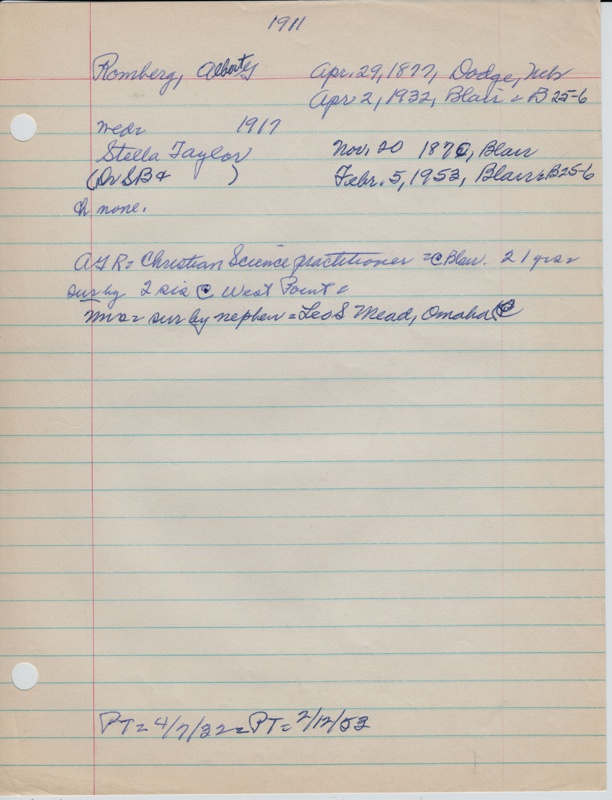 1911
Romberg, Albert
Apr. 29, 1877, Dodge, Neb
Apr 2, 1932, Blair = B 25-6
med= 1917
Stella Taylor
Nov. 20 187, Blair
(Dr SB & )
Febr. 5, 1953, Blair = B 25-6
Ch none.
AGR = Christian Science practitioner = @ Blair. 21 yrs =
sur by 2 sis @ West Point =
Mrs = sur by nephew = Leo S Mead, Omaha
PT = 4/7/32 = PT = 2/12/53